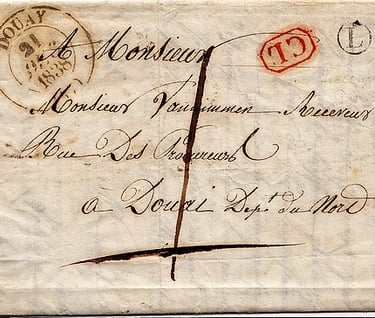 DOUAY
21
1838
CL
L
A Monsieur
Monsieur Vanimmen Receveur
Rue Des Procureurs
1
à Douai Dept du Nord